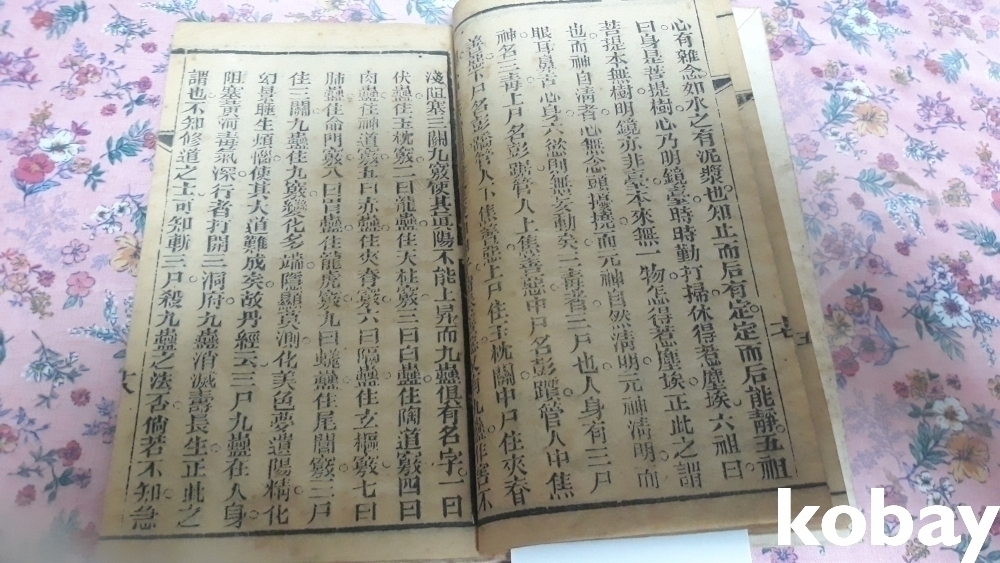 心有雜念如水之有泥漿也知止而后有定定而后能靜五祖
曰身是菩提樹心乃明鏡臺時時勤打掃休得惹塵埃六祖曰
菩提本無樹明鏡亦非臺本來無一物怎得惹塵埃正此之謂
也而神自清者心無念頭擾攘而元神自然清明元神清明而
眼耳鼻舌心身六慾前無妄動矣三毒者三尸也人身有三尸
神名三毒上尸名彭踞管人上焦善惡中尸名彭躓管人中焦
惡下尸名彭蹻管人下焦善惡上尸住玉枕關中尸住夾脊
淺阻塞三關九竅使其眞陽不能上昇而九蠱俱有名字一曰
伏蠱住玉枕竅二曰龍蠱住天柱竅三曰白蠱住陶道竅四曰
肉蠱住神道竅五曰赤蠱住夾脊竅六曰隔蠱住玄樞竅七曰
肺蠱住命門竅八曰胃蠱住龍虎竅九曰蜣蠱住尾閭竅三尸
住三關九蠱住九竅變化多端隱顯莫測化美色夢遺陽精化
幻景睡生煩惱使其大道難成矣故丹經云三尸九蠱在人身
阻塞黃河毒氣深行者打開三洞府九蠱消滅壽長生正此之
謂也不知修道之士可知斬三尸殺九蠱之法否倘若不知急
六
kobay